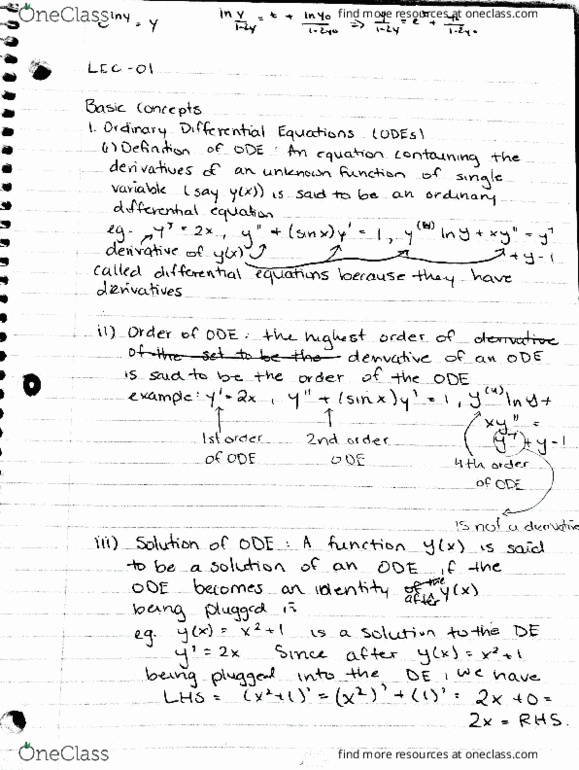 OneClass
find more resources at oneclass.com
e^lny = y
LEC-01
Basic Concepts
1. Ordinary Differential Equations (ODEs)
(i) Definition of ODE: An equation containing the
derivatives of an unknown function of single
variable (say y(x)) is said to be an ordinary
differential equation
eg. y' = 2x, y" + (sinx)y' = 1, y^(4) ln y + xy" = y^7
+ y - 1
derivative of y(x)
called differential equations because they have
derivatives
ii) Order of ODE: the highest order of derivative
of the set to be the derivative of an ODE
is said to be the order of the ODE
example: y' = 2x, y" + (sinx)y' = 1, y^(4) ln y +
xy" =
y^7 + y - 1
1st order
of ODE
2nd order
ODE
4th order
of ODE
is not a derivative
iii) Solution of ODE: A function y(x) is said
to be a solution of an ODE if the
ODE becomes an identity of the after y(x)
being plugged in
eg. y(x) = x² + 1 is a solution to the DE
y' = 2x Since after y(x) = x² + 1
being plugged into the DE, we have
LHS = (x² + 1)' = (x²)' + (1)' = 2x + 0 =
2x = RHS.
OneClass
find more resources at oneclass.com